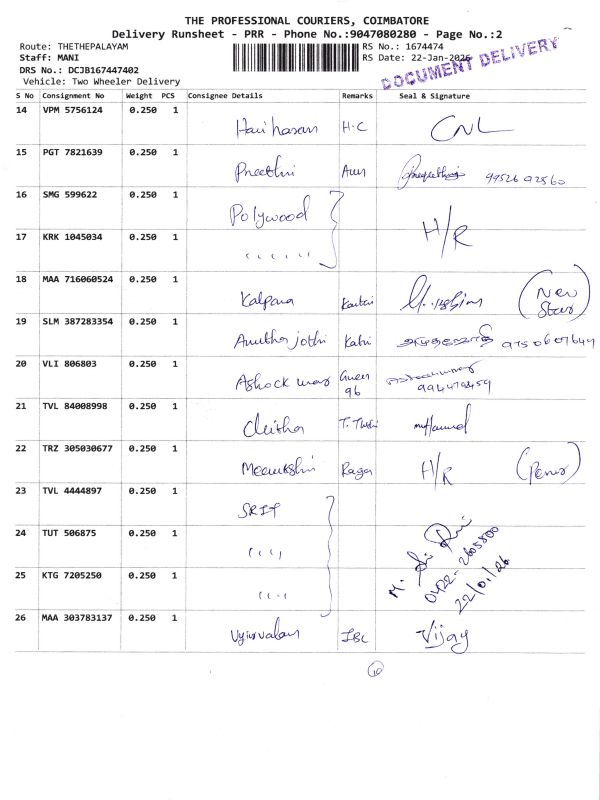 THE PROFESSIONAL COURIERS, COIMBATORE
Delivery Runsheet - PRR - Phone No.:9047080280 - Page No.:2
Route: THETHEPALAYAM
RS No.: 1674474
Staff: MANI
RS Date: 22-Jan-2026
DRS No.: DCJB167447402
DOCUMENT DELIVERY
Vehicle: Two Wheeler Delivery
S No Consignment No Weight PCS Consignee Details Remarks Seal & Signature
14 VPM 5756124 0.250 1 Hariharan H.C CNL
15 PGT 7821639 0.250 1 Preethi
16 SMG 599622 0.250 1 Polywood H/R
17 KRK 1045034 0.250 1 " " " "
18 MAA 716060524 0.250 1 Kalpana (New Star)
19 SLM 387283354 0.250 1 Amutha jothi 9750607644
20 VLI 806803 0.250 1
21 TVL 84008998 0.250 1
22 TRZ 305030677 0.250 1 Meenakshi H/R
23 TVL 4444897 0.250 1 SRIT
24 TUT 506875 0.250 1 " " " M.
0422-2605800
25 KTG 7205250 0.250 1 " " " 22/01/26
26 MAA 303783137 0.250 1 IBC Vijay